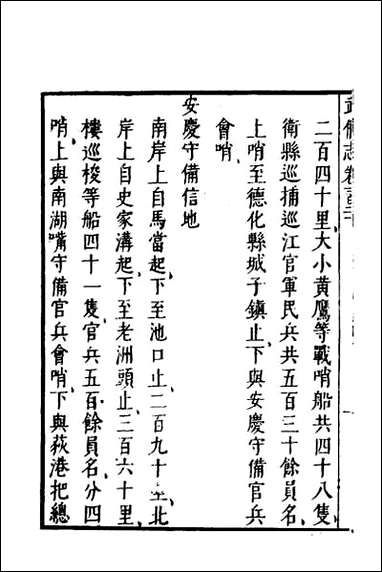 武備志卷
二百四十里大小黃鷹等戰哨船共四十八隻
衛縣巡捕巡江官軍民兵共五百三十餘員名
上哨至德化縣城子鎮止下與安慶守備官兵
會哨
安慶守備信地
南岸上自馬當起下至池口止二百九十里北
岸上自史家溝起下至老洲頭止三百六十里
樓巡梭等船四十一隻官兵五百餘員名分四
哨上與南湖嘴守備官兵會哨下與荻港把總